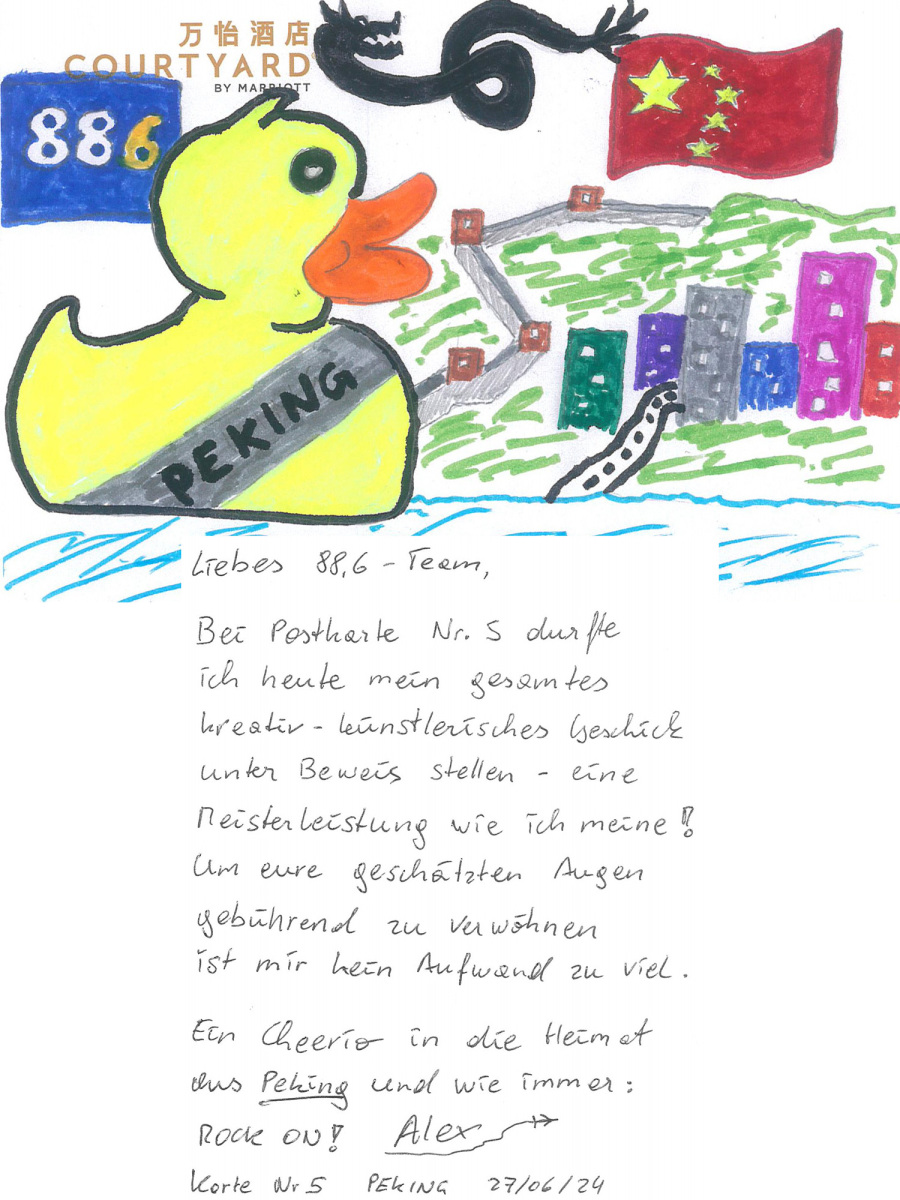 万怡酒店
COURTYARD
BY MARRIOTT
886
PEKING
Liebes 88,6 - Team,
Bei Postkarte Nr. 5 durfte
ich heute mein gesamtes
kreativ - künstlerisches Geschick
unter Beweis stellen - eine
Meisterleistung wie ich meine!
Um eure geschätzten Augen
gebührend zu verwöhnen
ist mir kein Aufwand zu viel.
Ein Cheerio in die Heimat
aus Peking und wie immer:
ROCK ON! Alex
Karte Nr 5 PEKING 27/06/24